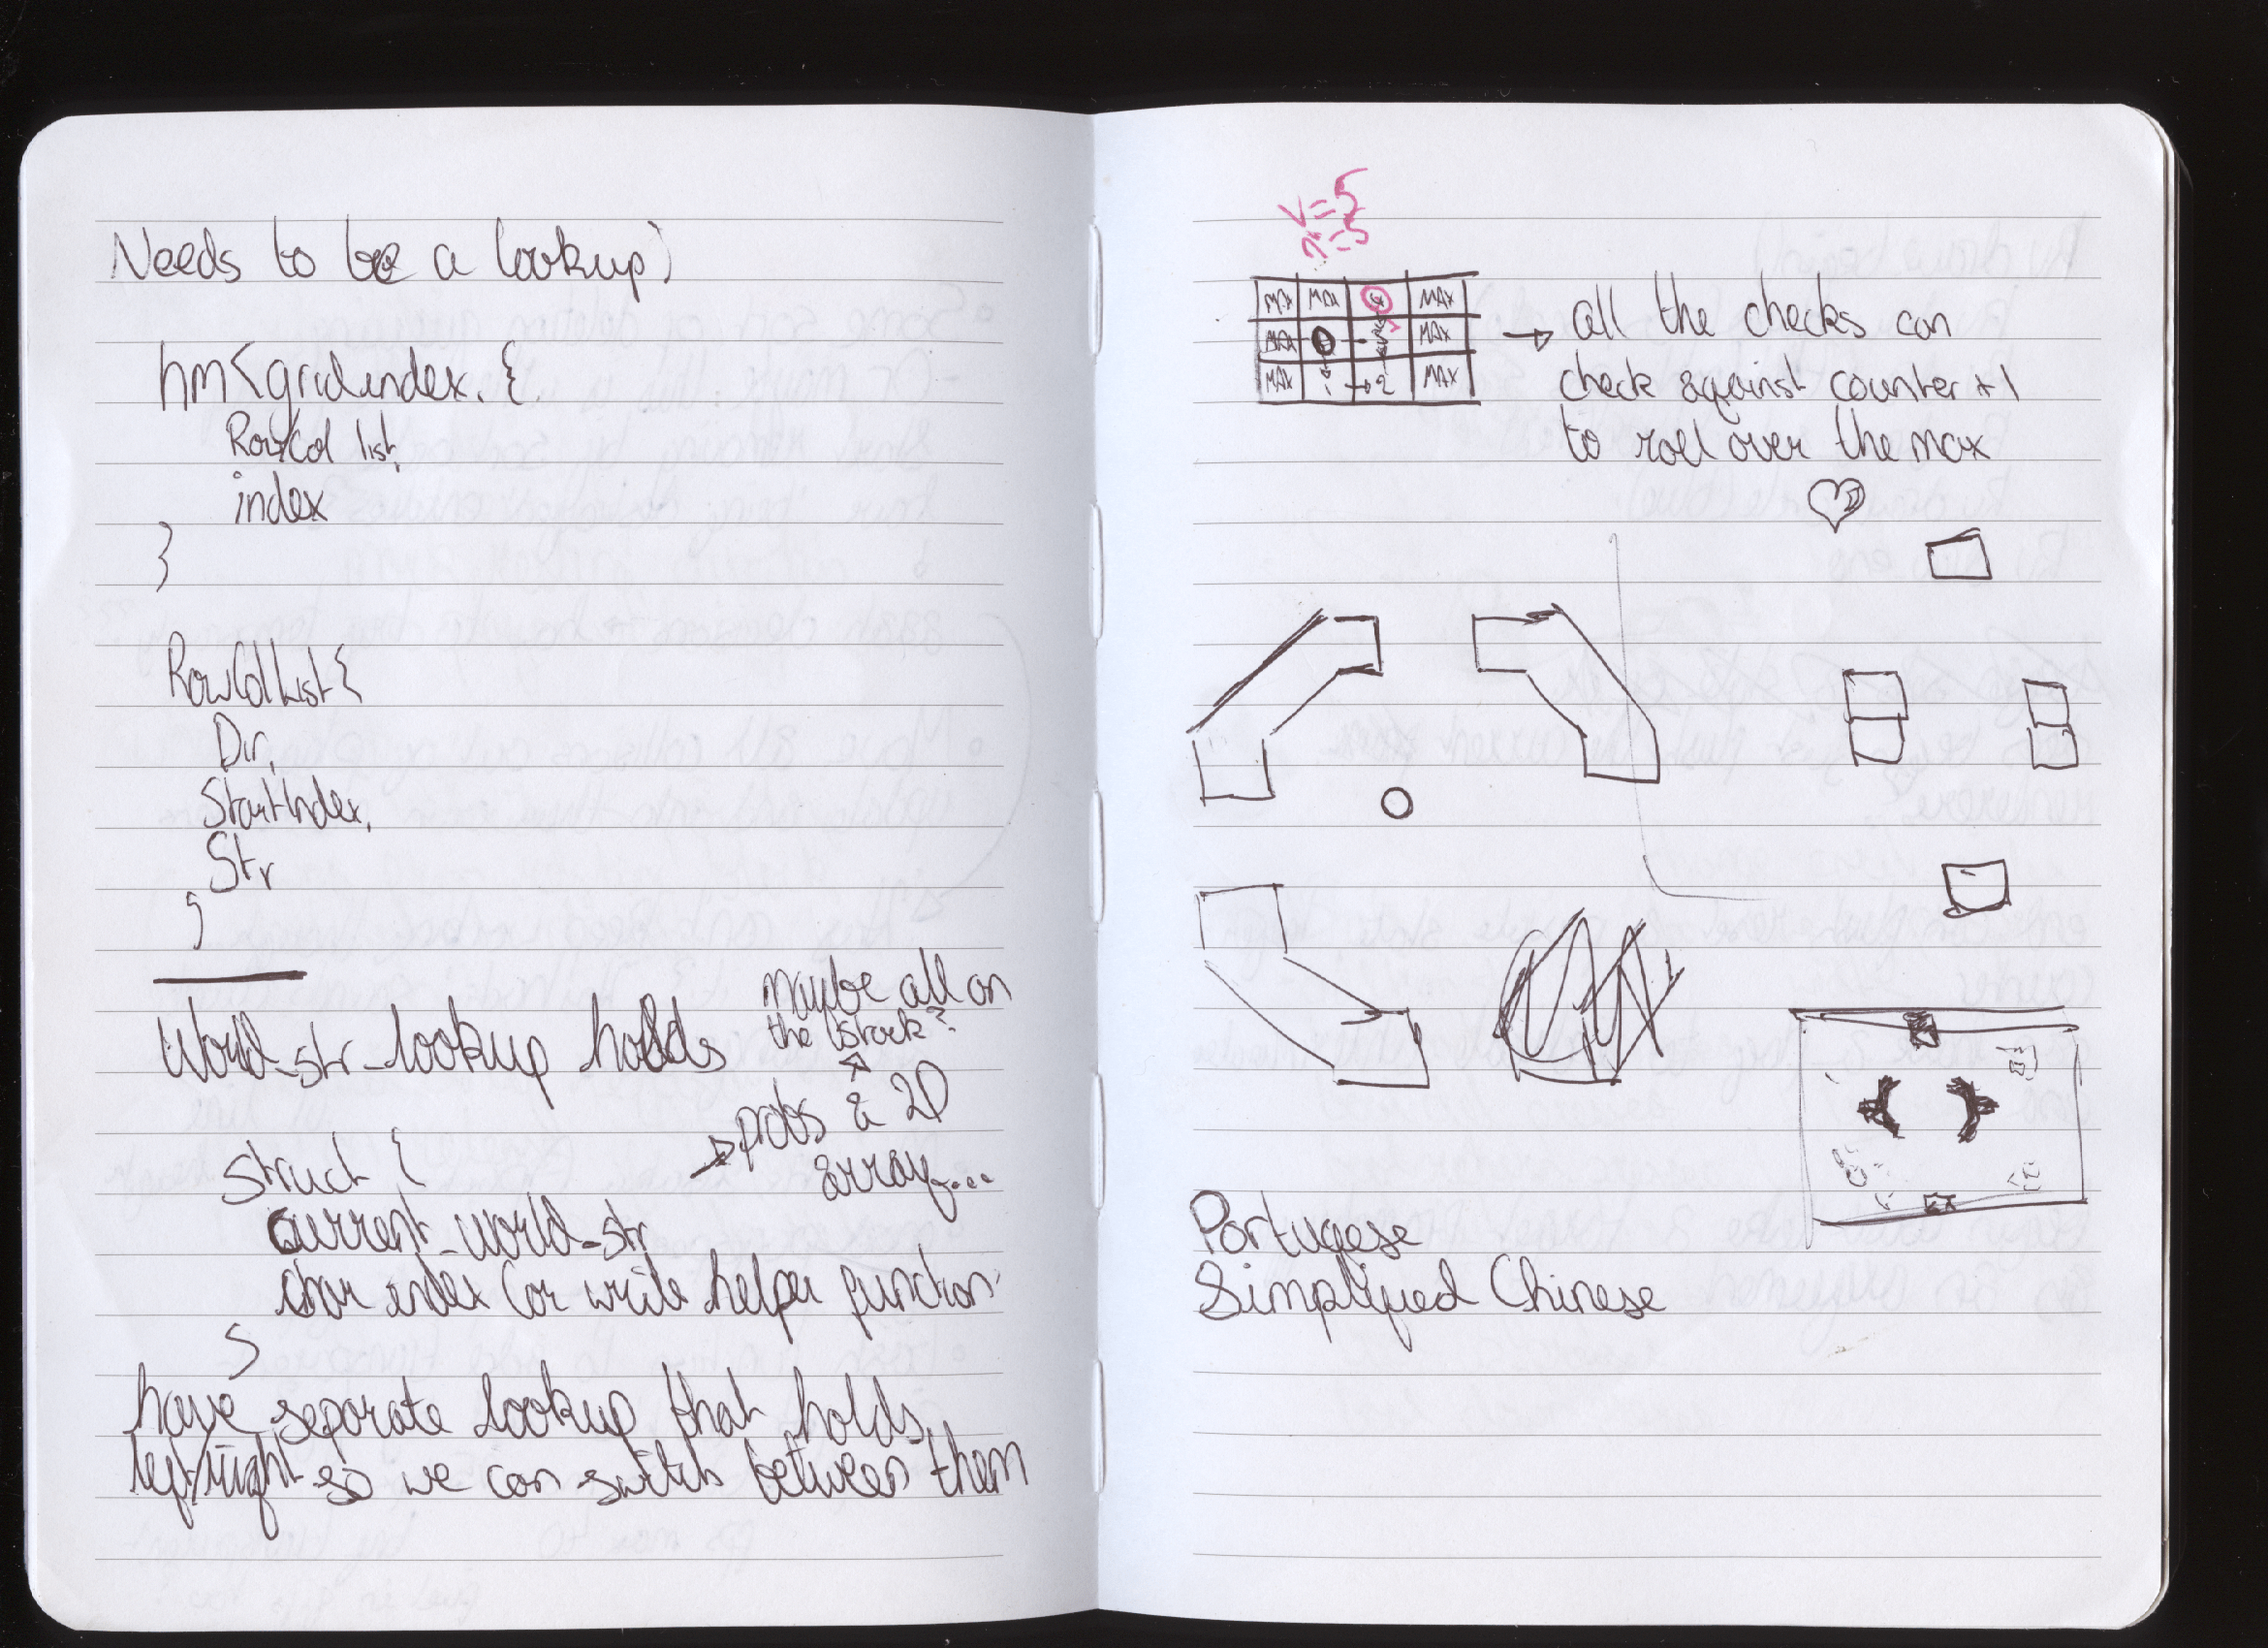 Needs to be a lookup)
hm<gridindex, {
RowCol list,
index
}
RowColList {
Dir,
StartIndex,
Str
}
World_str_lookup holds
maybe all on
the stack?
→ probs a 2D
array...
struct {
current_world_str
char index (or write helper function
}
have separate lookup that holds
left/right so we can switch between them
V=5
=5
MAX MAX MAX
MAX 0 MAX
MAX 1 → 2 MAX
→ all the checks can
check against counter +1
to roll over the max
Portugese
Simplified Chinese